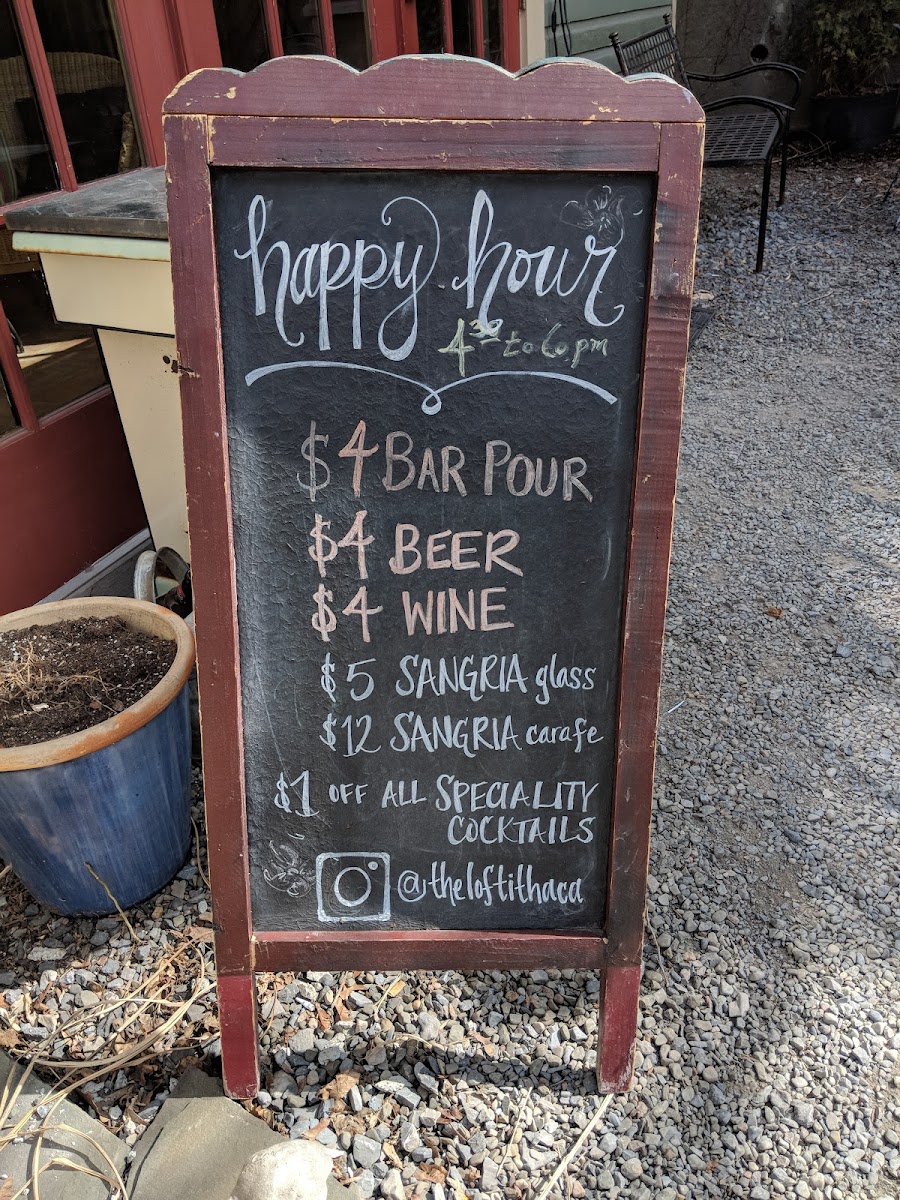 happy hour
4³⁰ to 6 pm
$4 BAR POUR
$4 BEER
$4 WINE
$5 SANGRIA glass
$12 SANGRIA carafe
$1 OFF ALL SPECIALITY
COCKTAILS
@theloftithaca